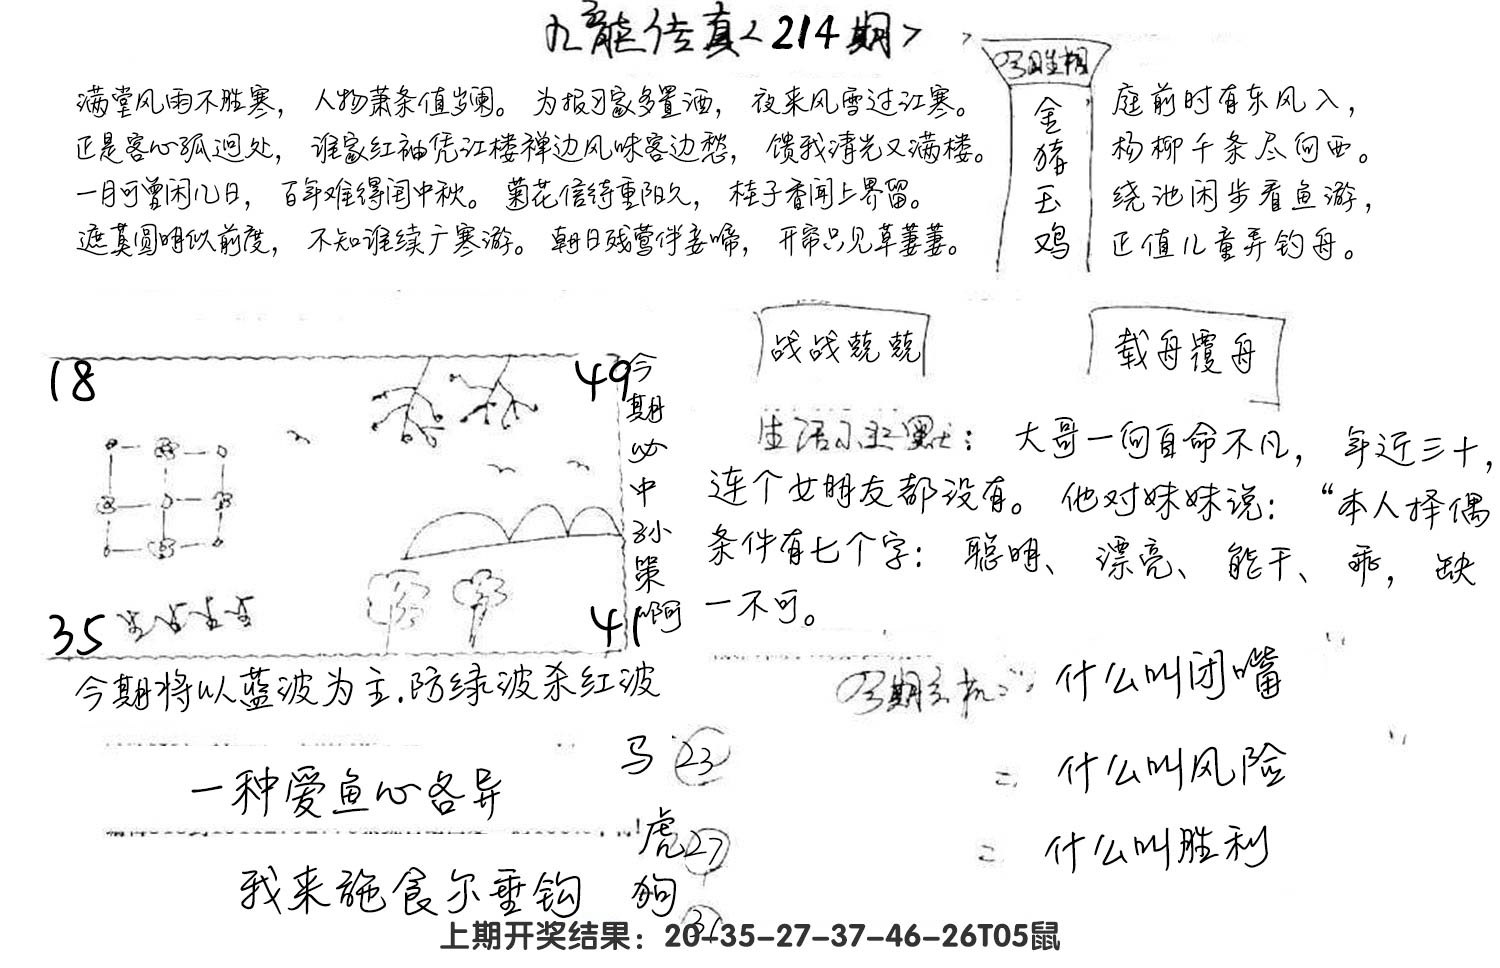 九龍传真<214期>
满堂风雨不胜寒，人物萧条值岁阑。为报习家多置酒，夜来风雪过江寒。
正是客心孤迥处，谁家红袖凭江楼禅边风味客边愁，馈我清光又满楼。
一月可曾闲几日，百年难得闰中秋。菊花信待重阳久，桂子香闻上界留。
遮莫圆明似前度，不知谁续广寒游。朝日残莺伴妾啼，开帘只见草萋萋。
今期生相
金
猪
玉
鸡
庭前时有东风入，
杨柳千条尽向西。
绕池闲步看鱼游，
正值儿童弄钓舟。
战战兢兢
载舟覆舟
18
49
35
41
今期必中孙策啊
生活小幽默：大哥一向自命不凡，年近三十，
连个女朋友都没有。他对妹妹说：“本人择偶
条件有七个字：聪明、漂亮、能干、乖，缺
一不可。
今期将以蓝波为主.防绿波杀红波
一种爱鱼心各异
我来施食尔垂钩
马 23
虎 27
狗 31
今期玄机：什么叫闭嘴
什么叫风险
什么叫胜利
上期开奖结果：20-35-27-37-46-26T05鼠